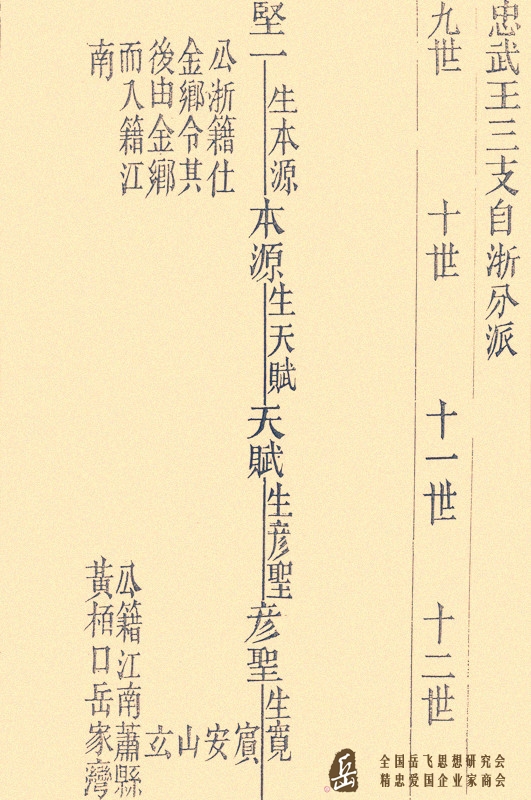 忠武王三支自浙分派
九世
十世
十一世
十二世
堅一
生本源
公浙籍仕
金鄉令其
後由金鄉
而入籍江
南
本源
生天賦
天賦
生彥聖
彥聖
生寬
賔
安
山
玄
公籍江南蕭縣
黃栢口岳家灣
岳
全国岳飞思想研究会
精忠爱国企业家商会